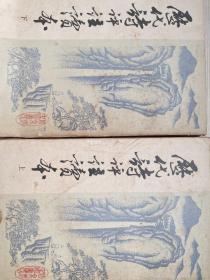 歷代詩評註讀本
下
歷代詩評註讀本
上